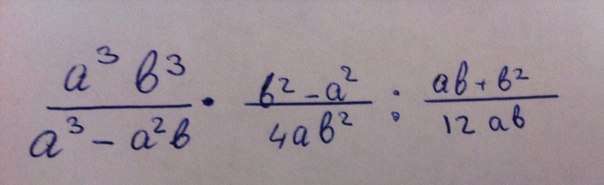 a³ b³ / (a³ − a²b) · (b² − a²) / (4ab²) : (ab + b²) / (12ab)